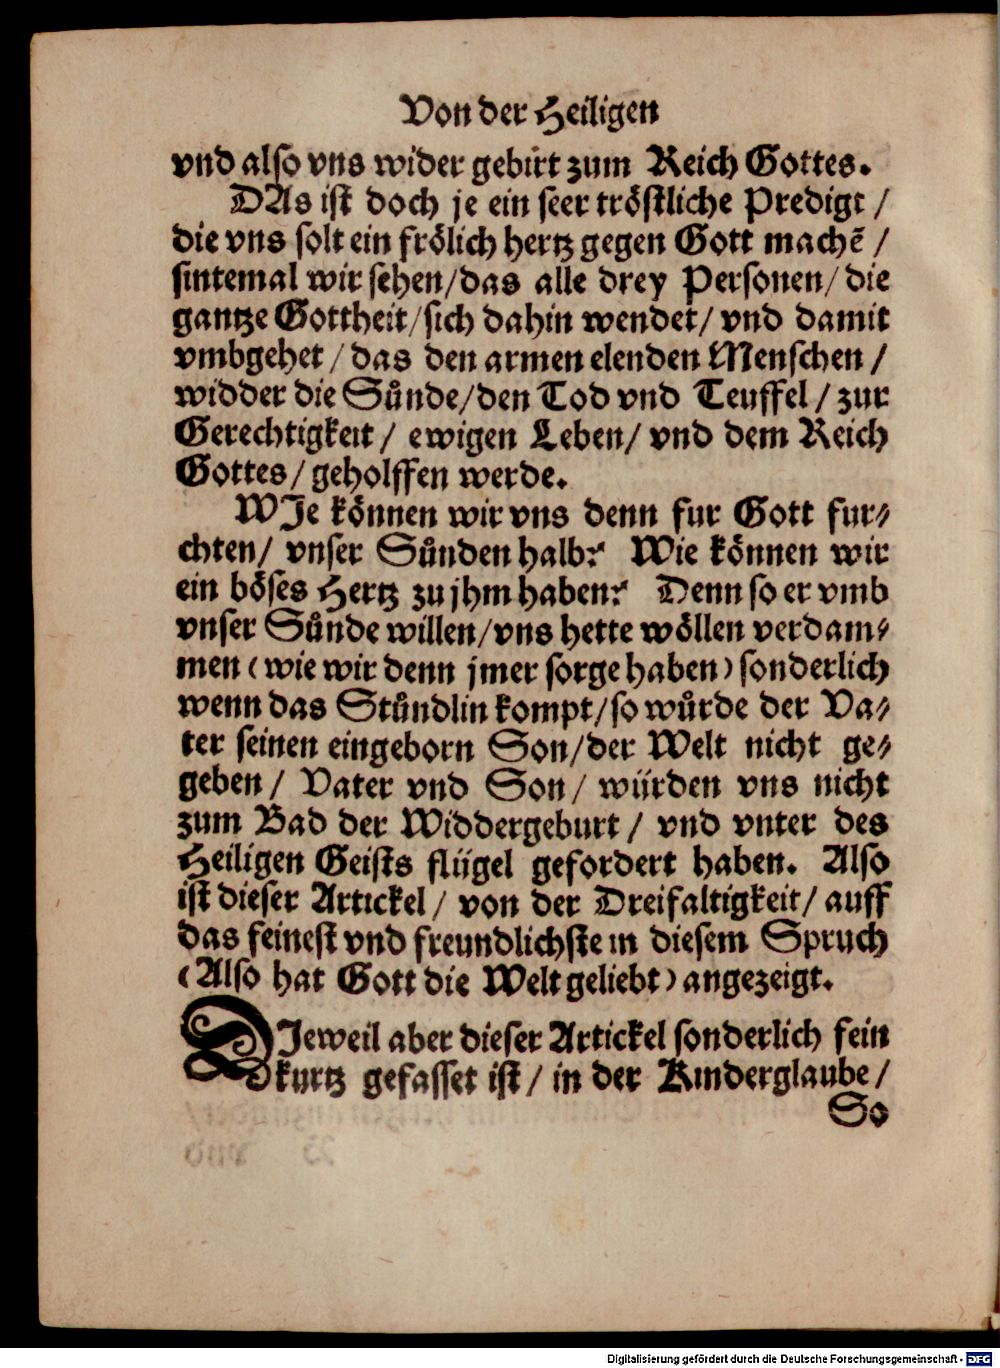 Von der Heiligen
vnd also vns wider gebirt zum Reich Gottes.
DAs ist doch je ein seer tröstliche Predigt /
die vns solt ein frölich hertz gegen Gott machē /
sintemal wir sehen/das alle drey Personen/ die
gantze Gottheit/sich dahin wendet/ vnd damit
vmbgehet / das den armen elenden Menschen /
widder die Sůnde/den Tod vnd Teuffel / zur
Gerechtigkeit / ewigen Leben/ vnd dem Reich
Gottes/ geholffen werde.
WJe können wir vns denn fur Gott fur⸗
chten/ vnser Sůnden halb? Wie können wir
ein böses Hertz zu jhm haben? Denn so er vmb
vnser Sůnde willen/vns hette wöllen verdam⸗
men (wie wir denn jmer sorge haben) sonderlich
wenn das Stůndlin kompt/so wůrde der Va⸗
ter seinen eingeborn Son/der Welt nicht ge⸗
geben / Vater vnd Son / würden vns nicht
zum Bad der Widdergeburt / vnd vnter des
Heiligen Geists flügel gefordert haben. Also
ist dieser Artickel / von der Dreifaltigkeit/ auff
das feinest vnd freundlichste in diesem Spruch
(Also hat Gott die Welt geliebt) angezeigt.
DJeweil aber dieser Artickel sonderlich fein
kurtz gefasset ist / in der Kinderglaube /
So
Digitalisierung gefördert durch die Deutsche Forschungsgemeinschaft - DFG